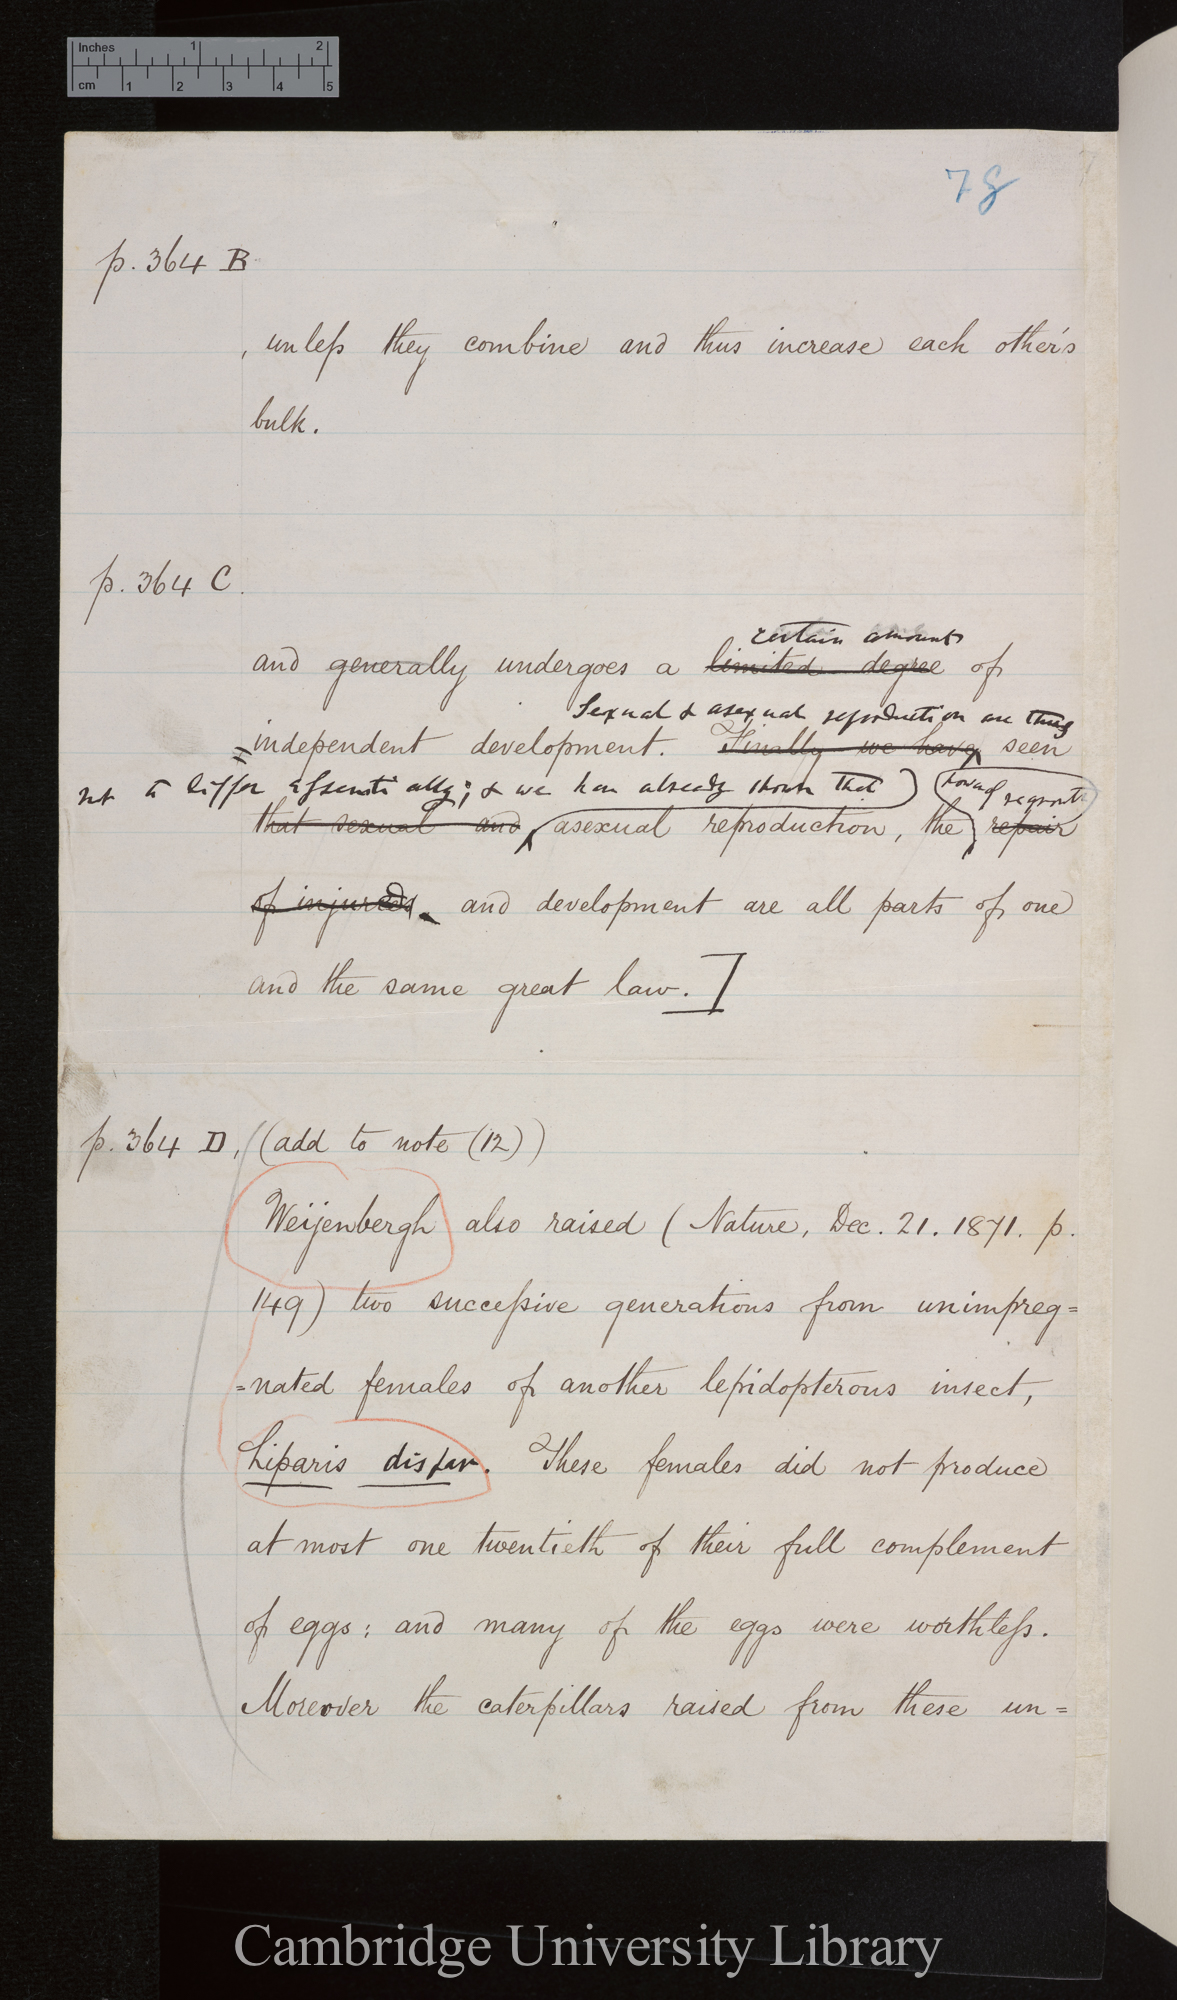 Inches 1 2
cm 1 2 3 4 5
78
p. 364 B
, unless they combine and thus increase each other's
bulk.
p. 364 C.
certain amount
and generally undergoes a limited degree of
Sexual & asexual reproduction are thus
=independent development. Finally we have seen
not to differ essentially; & we have already shown that
that sexual and asexual reproduction, the repair
power of regrowth
of injured and development are all parts of one
and the same great law.]
p. 364 D, ((add to note (12))
Weijenbergh also raised (Nature, Dec. 21. 1871. p.
149) two successive generations from unimpreg=
=nated females of another lepidopterous insect,
Liparis dispar. These females did not produce
at most one twentieth of their full complement
of eggs; and many of the eggs were worthless.
Moreover the caterpillars raised from these un=
Cambridge University Library